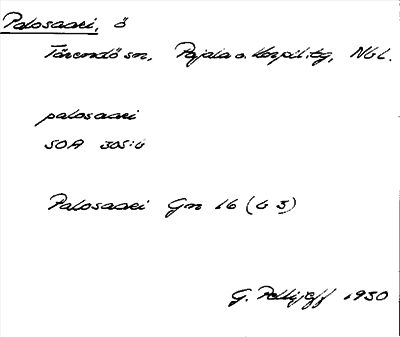 Palosaari, ö
Tärendö sn, Pajala o. Korpil. tg, Nbl.
palosaari
SOA 305:6
Palosaari Gm 16 (6 5)
G. Pellijeff 1930